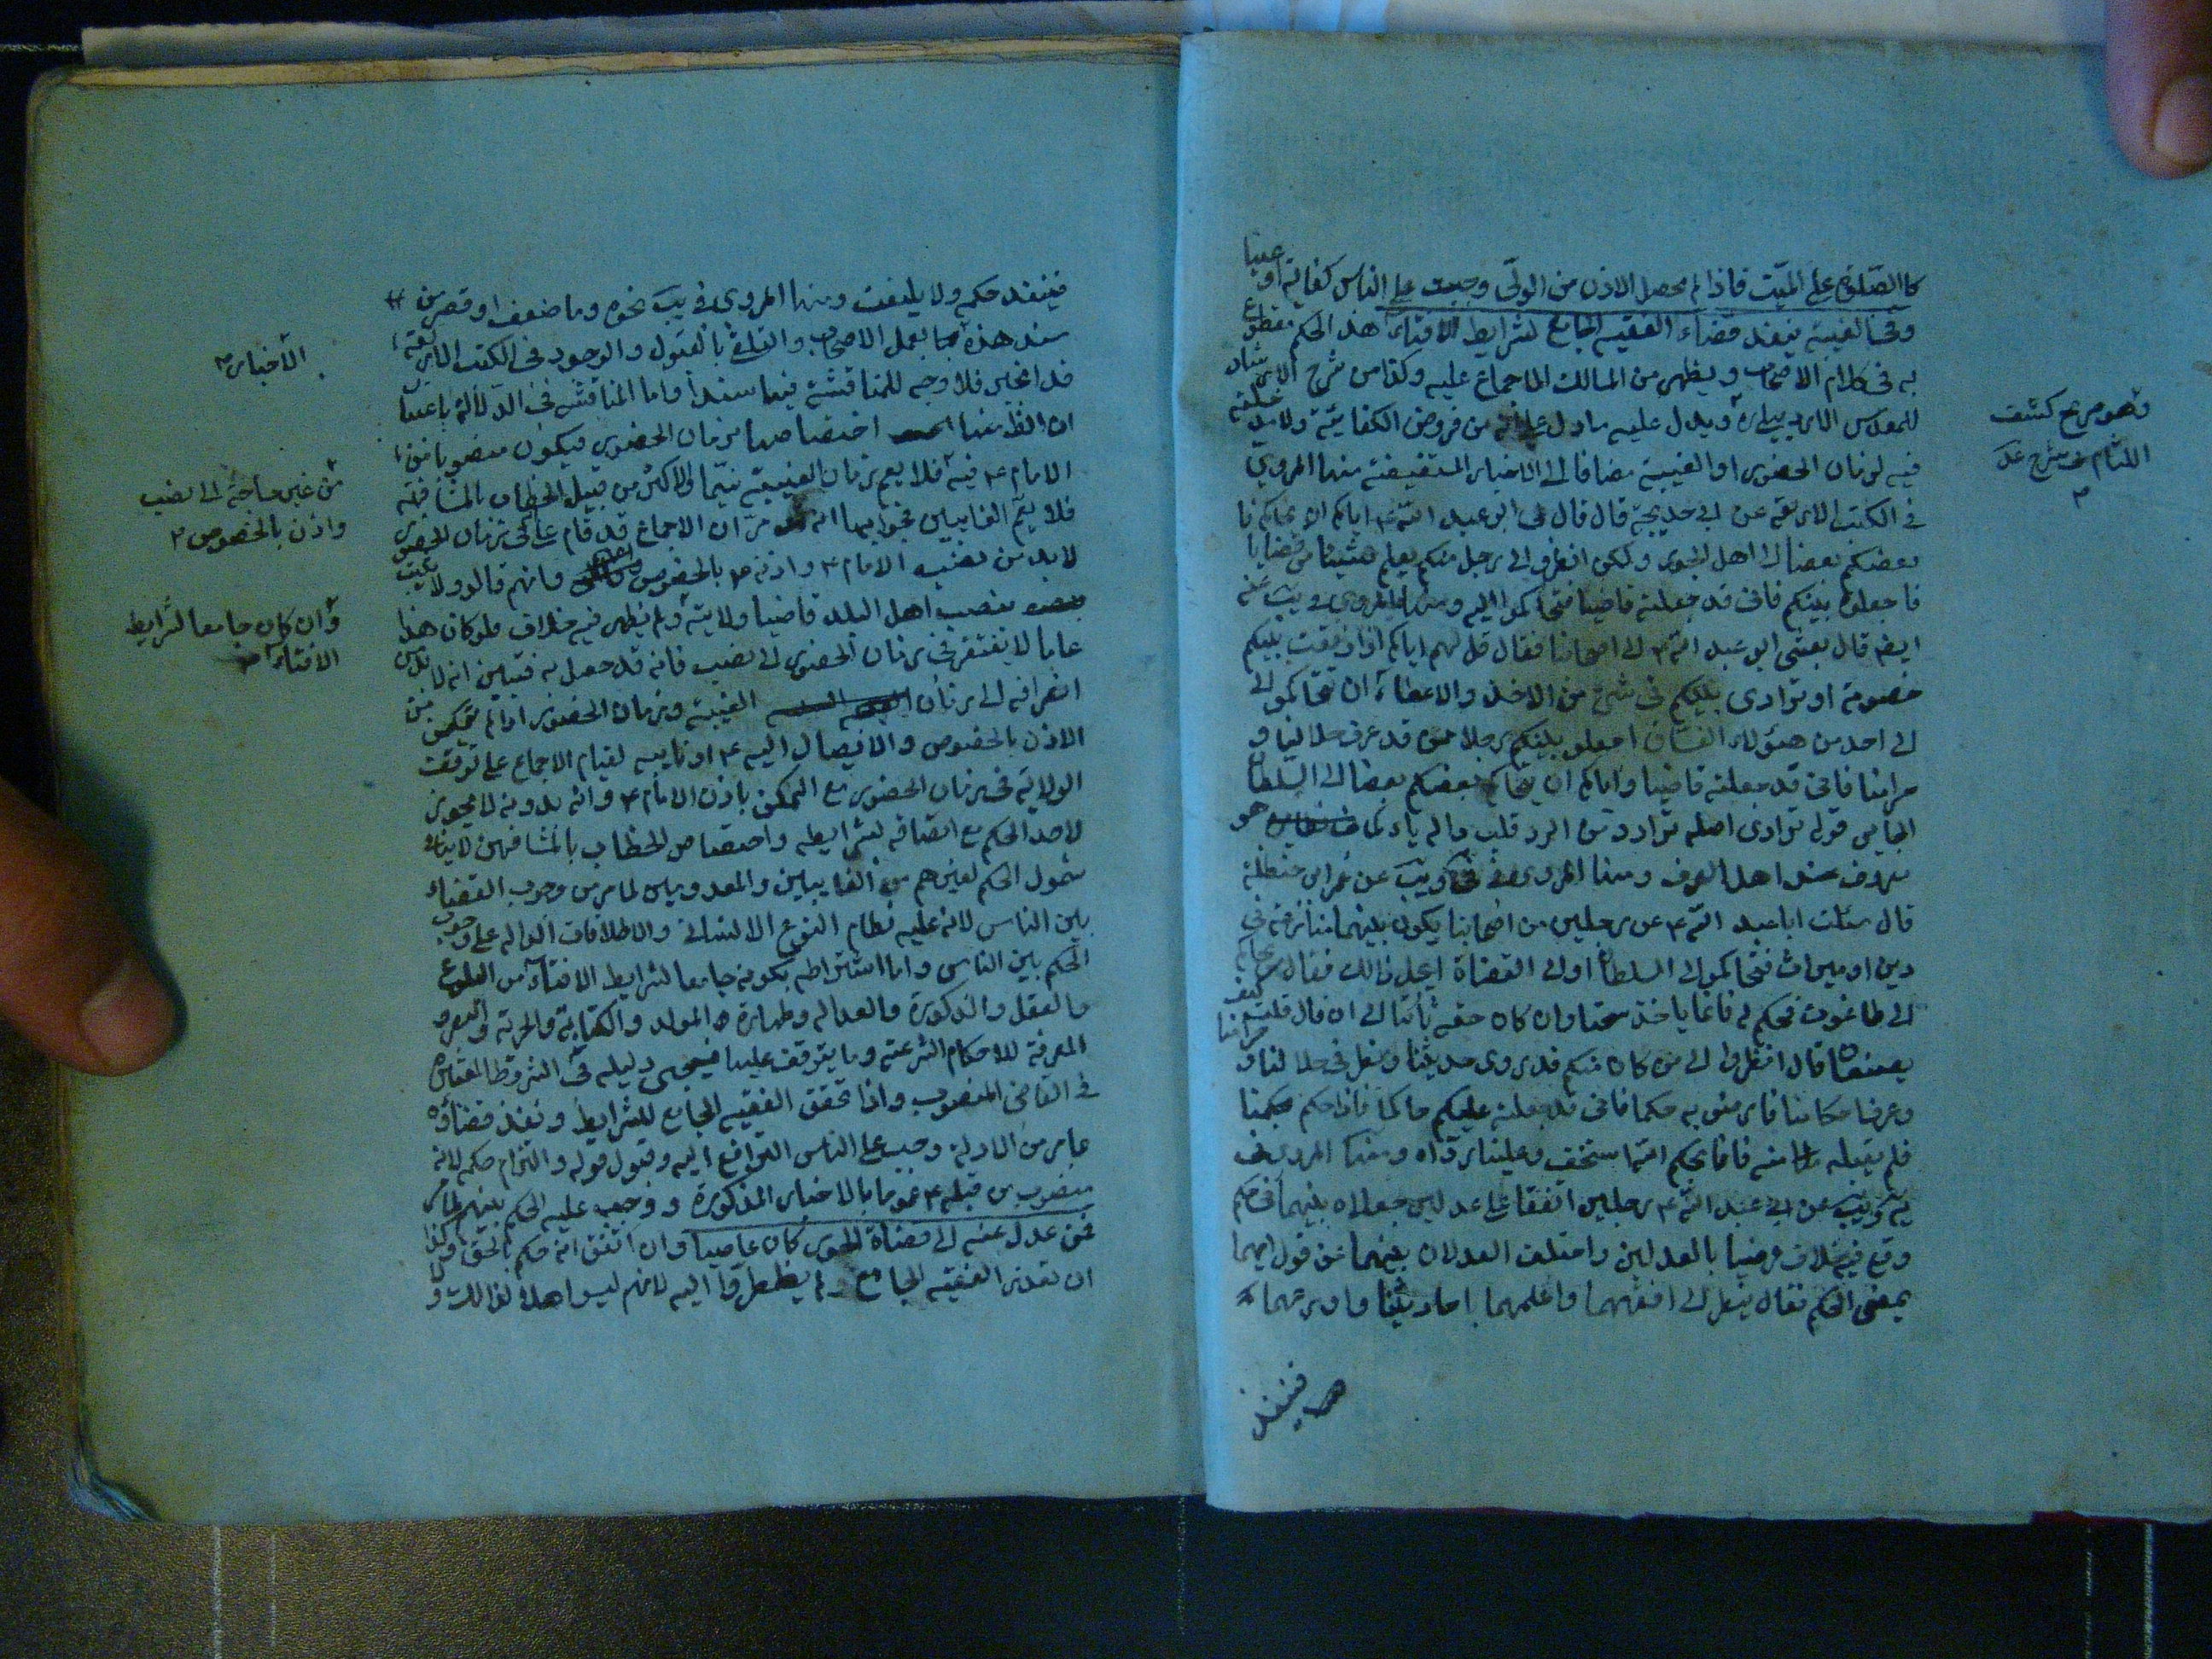 كالصلوة على الميّت فاذا لم يحصل الاذن من الولّى وجبت على الناس كفاية او عينا
وفى الغيبة ينفذ قضاء الفقيه الجامع لشرايط الافتاء هذا الحكم مقطوع
به فى كلام الاصحاب ويظهر من المسالك الاجماع عليه وكذا من شرح الارشاد
للمقدس الاردبيلى ره ويدل عليه ما دل على انه من فروض الكفاية ولا مدخلية
فيه لزمان الحضور او الغيبة مضافا الى الاخبار المستفيضة منها المروي
فى الكتب الاربعة عن ابى خديجة قال قال لى ابو عبد الله ع اياكم ان يحاكم
بعضكم بعضا الى اهل الجور ولكن انظروا الى رجل منكم يعلم شيئا من قضايانا
فاجعلوه بينكم فانى قد جعلته قاضيا فتحاكموا اليه ومنها المروى فى يب عنه
ايضا قال بعثنى ابو عبد الله ع الى اصحابنا فقال قل لهم اياكم اذا وقعت بينكم
خصومة او تراوى بينكم فى شئ من الاخذ والاعطاء ان تحاكموا
الى احد من هؤلاء الفساق اجعلوا بينكم رجلا ممن قد عرف حلالنا و
حرامنا فانى قد جعلته قاضيا واياكم ان يحاكم بعضكم بعضا الى السلطان
الجاير قوله ترادى اصله ترادد من الرد قلب داله ياء كما هو
معروف عند اهل الصرف ومنها المروى فى فى ويب عن عمر بن حنظلة
قال سئلت ابا عبد الله ع عن رجلين من اصحابنا يكون بينهما منازعة فى
دين او ميراث فتحاكموا الى السلطان او الى القضاة ايحل ذلك فقال من تحاكم
الى طاغوت فحكم له فانما ياخذ سحتا وان كان حقه ثابتا الى ان قال قلت كيف
يصنعان قال انظروا الى من كان منكم قد روى حديثنا ونظر فى حلالنا وحرامنا
وعرف احكامنا فارضوا به حكما فانى قد جعلته عليكم حاكما فاذا حكم بحكمنا
فلم يقبله منه فانما بحكم الله استخف وعلينا رد الله ومنها المروى فى
يه ويب عن ابى عبد الله ع رجلين اتفقا على عدلين جعلاه بينهما فى حكم
وقع فيه خلاف فرضيا بالعدلين واختلف العدلان بينهما عن قول ايهما
يمضى الحكم فقال ينظر الى افقههما واعلمهما باحاديثنا واورعهما
فينفذ
وهو صريح كشف
اللثام فى شرح عد
فينفذ حكمه ولا يلتفت ومنها المروى فى يب نحوه وما ضعف او قصر من
سند هذه بعمل الاصحاب والتلقى بالقبول والوجود فى الكتب الاربعة
قد انجبر فلا وجه للمناقشة فيها سندا واما المناقشة فى الدلالة باعتبار
ان الظ منها اختصاصها بزمان الحضور فيكون منصوبا من
الامام ع فيه فلا يعم زمان الغيبة سيما والاكثر من قبيل الخطاب بالمشافهة
فلا يعم الغايبين فجوابها مر ان الاجماع قد قام على ان فى زمان الحضور
لا بد من نصب الامام ع واذنه ع بالخصوص فانهم قالوا ولا يثبت
بنصب اهل البلد قاضيا ولايته ولم يظهر فيه خلاف فلو كان هذا
عاما لا يفتقر فى زمان الحضور الى نصب فانه قد جعل له فتبين انه لا بد من
انصرافه الى زمان الغيبة وزمان الحضور اذا لم يتمكن من
الاذن بالخصوص والايصال اليه ع او نايبه لقيام الاجماع على توقف
الولاية فى زمان الحضور مع التمكن باذن الامام ع وانه بدونه لا يجوز
لاحد الحكم مع اتصافه لشرايطه واختصاص الخطاب بالمشافهين لا ينافى
شمول الحكم لغيرهم من الغايبين والمعدومين لما مر من وجوب القضاء
بين الناس لانه عليه نظام النوع الانسانى والاطلاقات الدالة على وجوب
الحكم بين الناس واما اشتراطه بكونه جامعا لشرايط الافتاء من البلوغ
والعقل والذكورة والعدالة وطهارة المولد والكتابة والحرية والبصر و
المعرفة للاحكام الشرعية وما يتوقف عليها فيجيئ دليله فى الشروط المعتبرة
فى القاضى المنصوب واذا تحقق الفقيه الجامع للشرايط ونفذ قضاؤه
بما مر من الادلة وجب على الناس الترافع اليه وقبول قوله والتزام حكمه لانه
منصوب من قبله ع عموما بالاخبار المذكورة ووجب عليه الحكم بينهم لما مر
فمن عدل عنه الى قضاة الجور كان عاصيا وان اتفق انه حكم بالحق وكذا
ان تعذر الفقيه الجامع ولم يضطروا اليه لانهم ليس اهلا لذلك و
الاخبار
من غير حاجة الى نصب
واذن بالخصوص
وان كان جامعا لشرايط
الافتاء